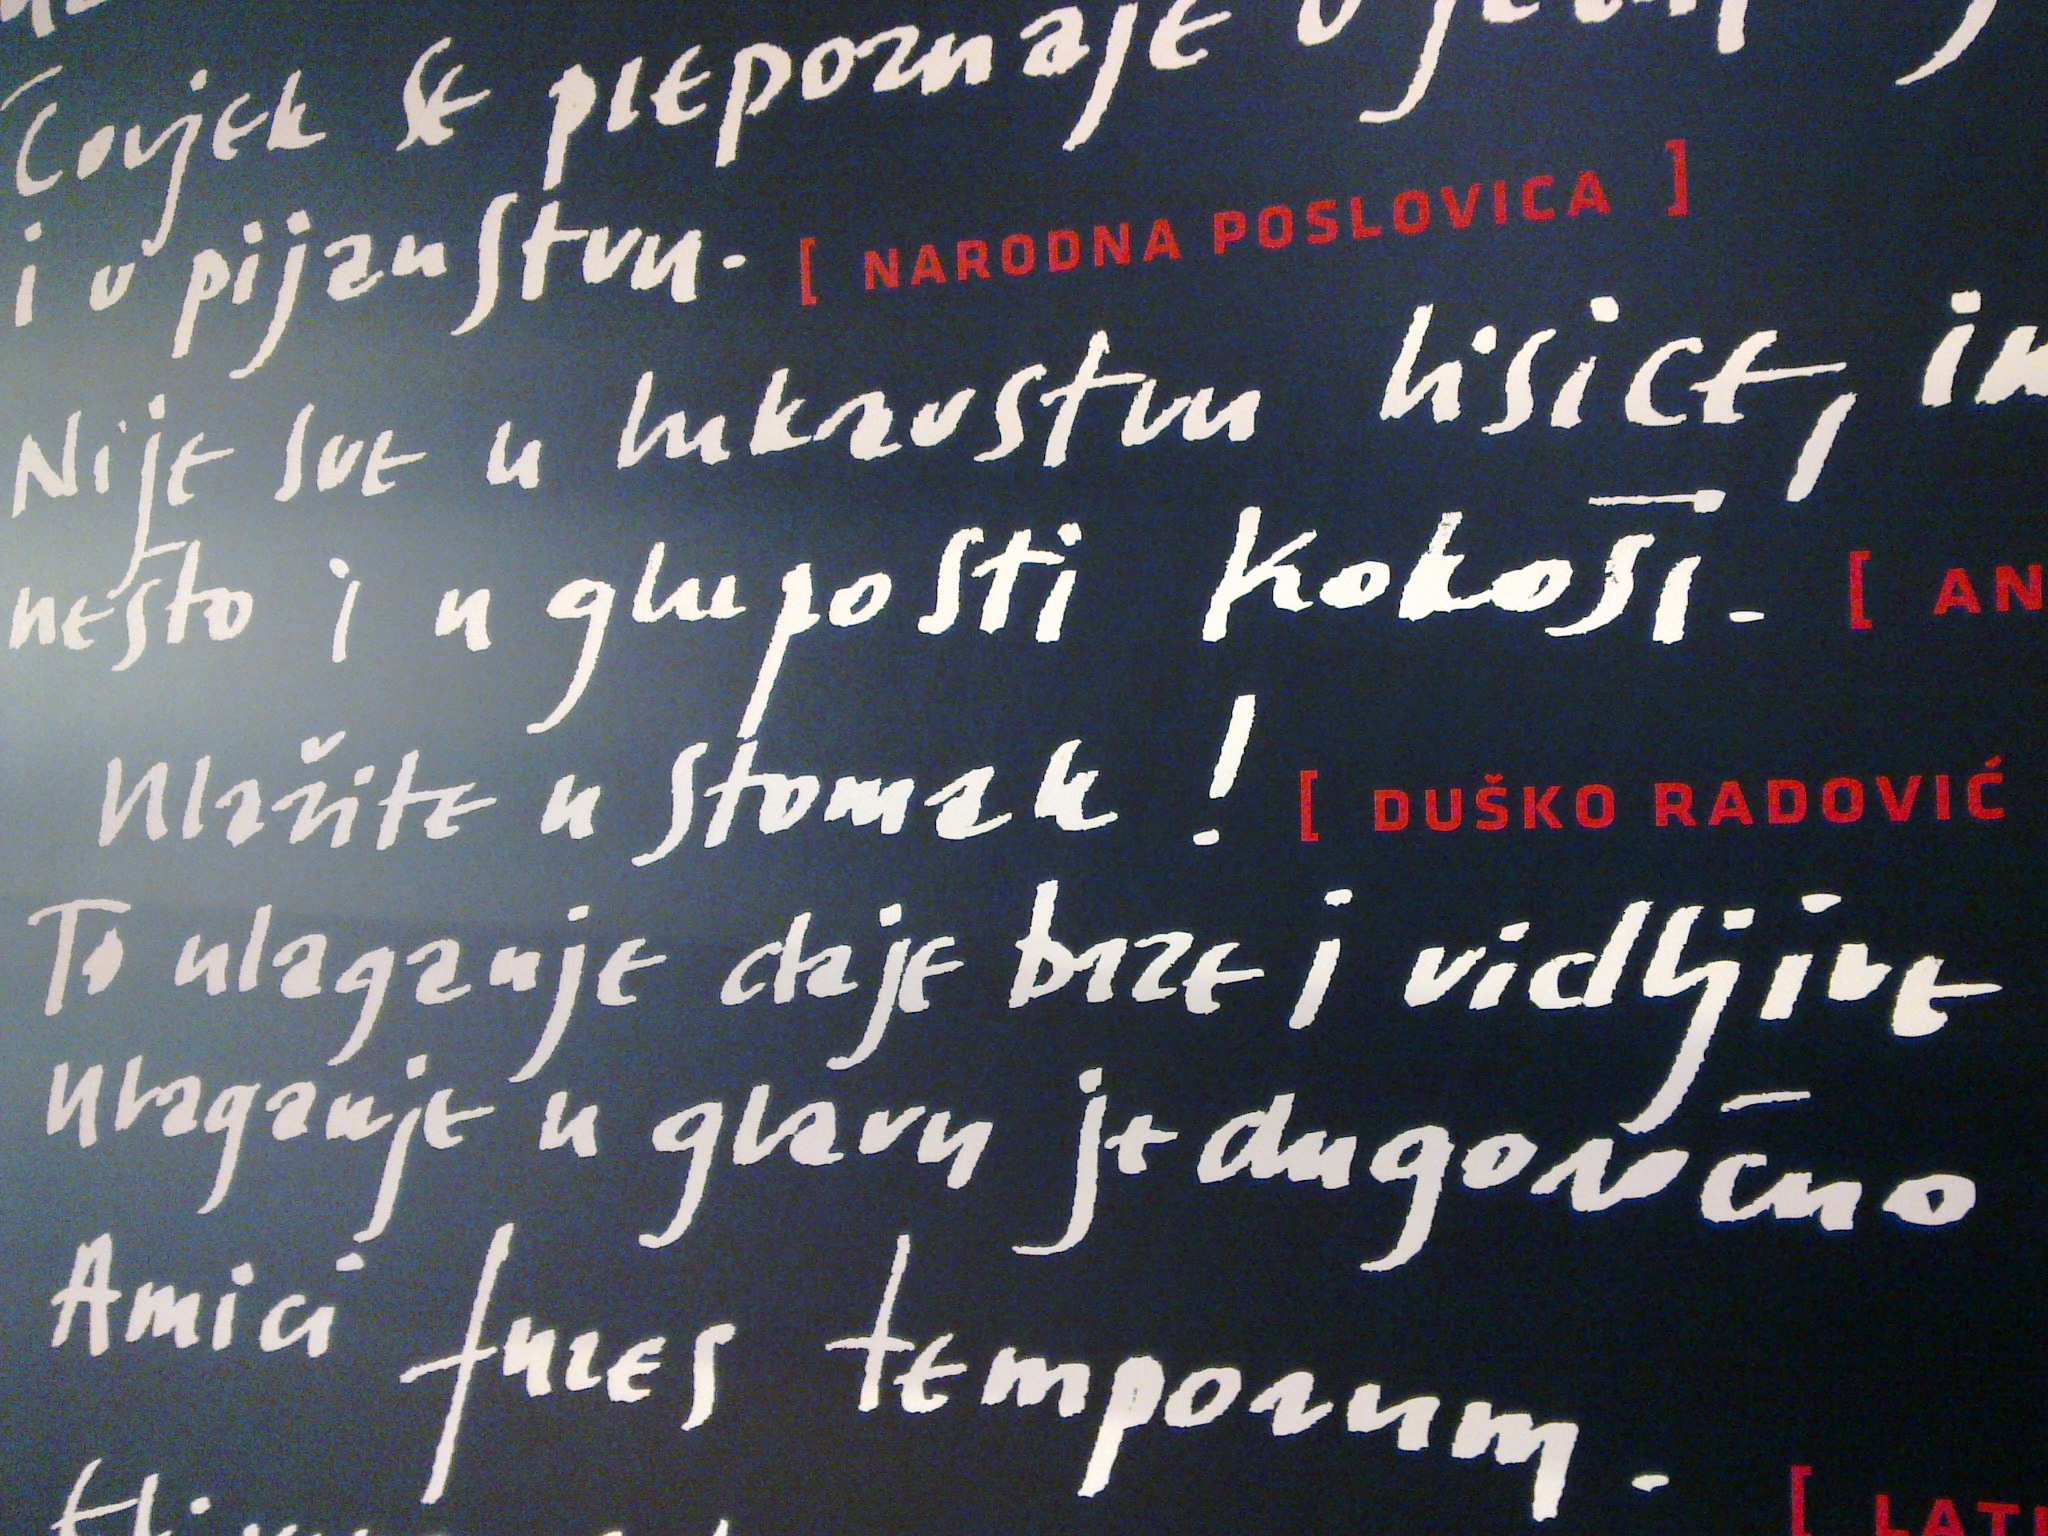 Čovjek se prepoznaje u
i u pijanstvu. [ NARODNA POSLOVICA ]
Nije sve u lukavstvu lisice,
nešto i u gluposti kokoši. [ AN
Ulažite u stomak! [ DUŠKO RADOVIĆ
To ulaganje daje brze i vidljive
Ulaganje u glavu je dugoročno
Amici fures temporum. [ LATI